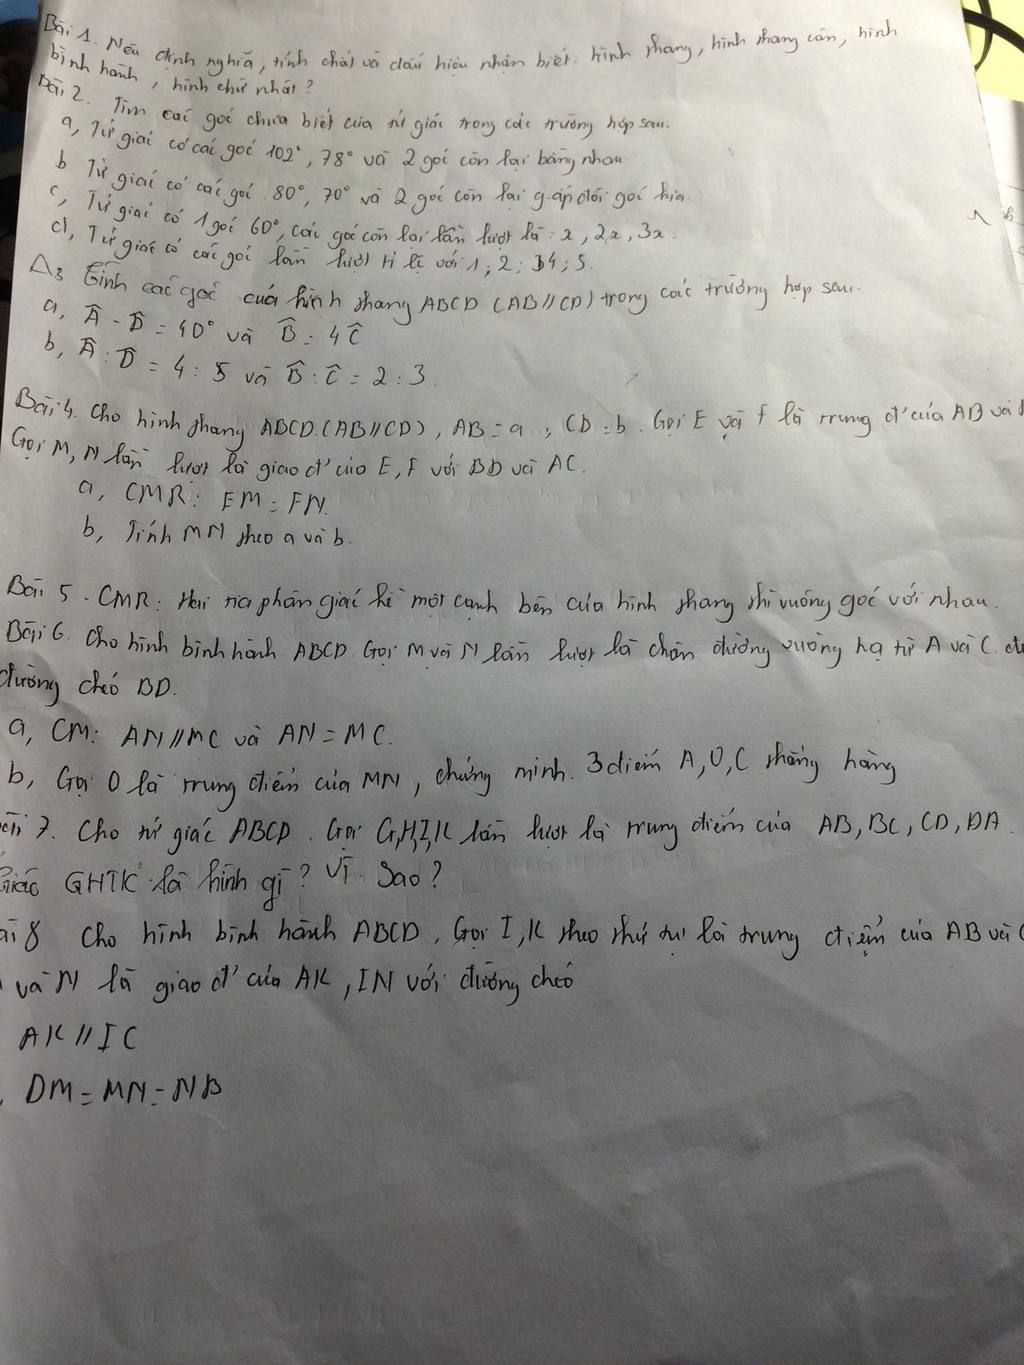 Bài 1. Nêu định nghĩa, tính chất và dấu hiệu nhận biết: hình thang, hình thang cân, hình
bình hành, hình chữ nhật?
Bài 2. Tìm các góc chưa biết của tứ giác trong các trường hợp sau.
a, Tứ giác có các góc 102°, 78° và 2 góc còn lại bằng nhau.
b Tứ giác có các góc 80°, 70° và 2 góc còn lại gấp đôi góc kia.
c, Tứ giác có 1 góc 60°, các góc còn lại lần lượt là: x, 2x, 3x.
d, Tứ giác có các góc lần lượt tỉ lệ với 1; 2; 34; 5.
3 Tính các góc của hình thang ABCD (AB//CD) trong các trường hợp sau.
a, Â - D̂ = 40° và B̂ = 4Ĉ
b, Â : D̂ = 4 : 5 và B̂ : Ĉ = 2 : 3.
Bài 4. Cho hình thang ABCD.(AB//CD), AB = a, CD = b. Gọi E và F là trung đ' của AB và
Gọi M, N lần lượt là giao đ' của E, F với BD và AC.
a, CMR: EM = FN.
b, Tính MN theo a và b.
Bài 5. CMR: Hai tia phân giác kề một cạnh bên của hình thang thì vuông góc với nhau.
Bài 6. Cho hình bình hành ABCD. Gọi M và N lần lượt là chân đường vuông hạ từ A và C.
đường chéo BD.
a, CM: AN // MC và AN = MC.
b, Gọi O là trung điểm của MN, chứng minh. 3 điểm A, O, C thẳng hàng
7. Cho tứ giác ABCD. Gọi G,H,I,K lần lượt là trung điểm của AB, BC, CD, DA.
giác GHIK là hình gì? Vì Sao?
8 Cho hình bình hành ABCD, Gọi I, K theo thứ tự là trung điểm của AB và
và N là giao đ' của AK, IN với đường chéo
AK // IC
DM = MN = NB